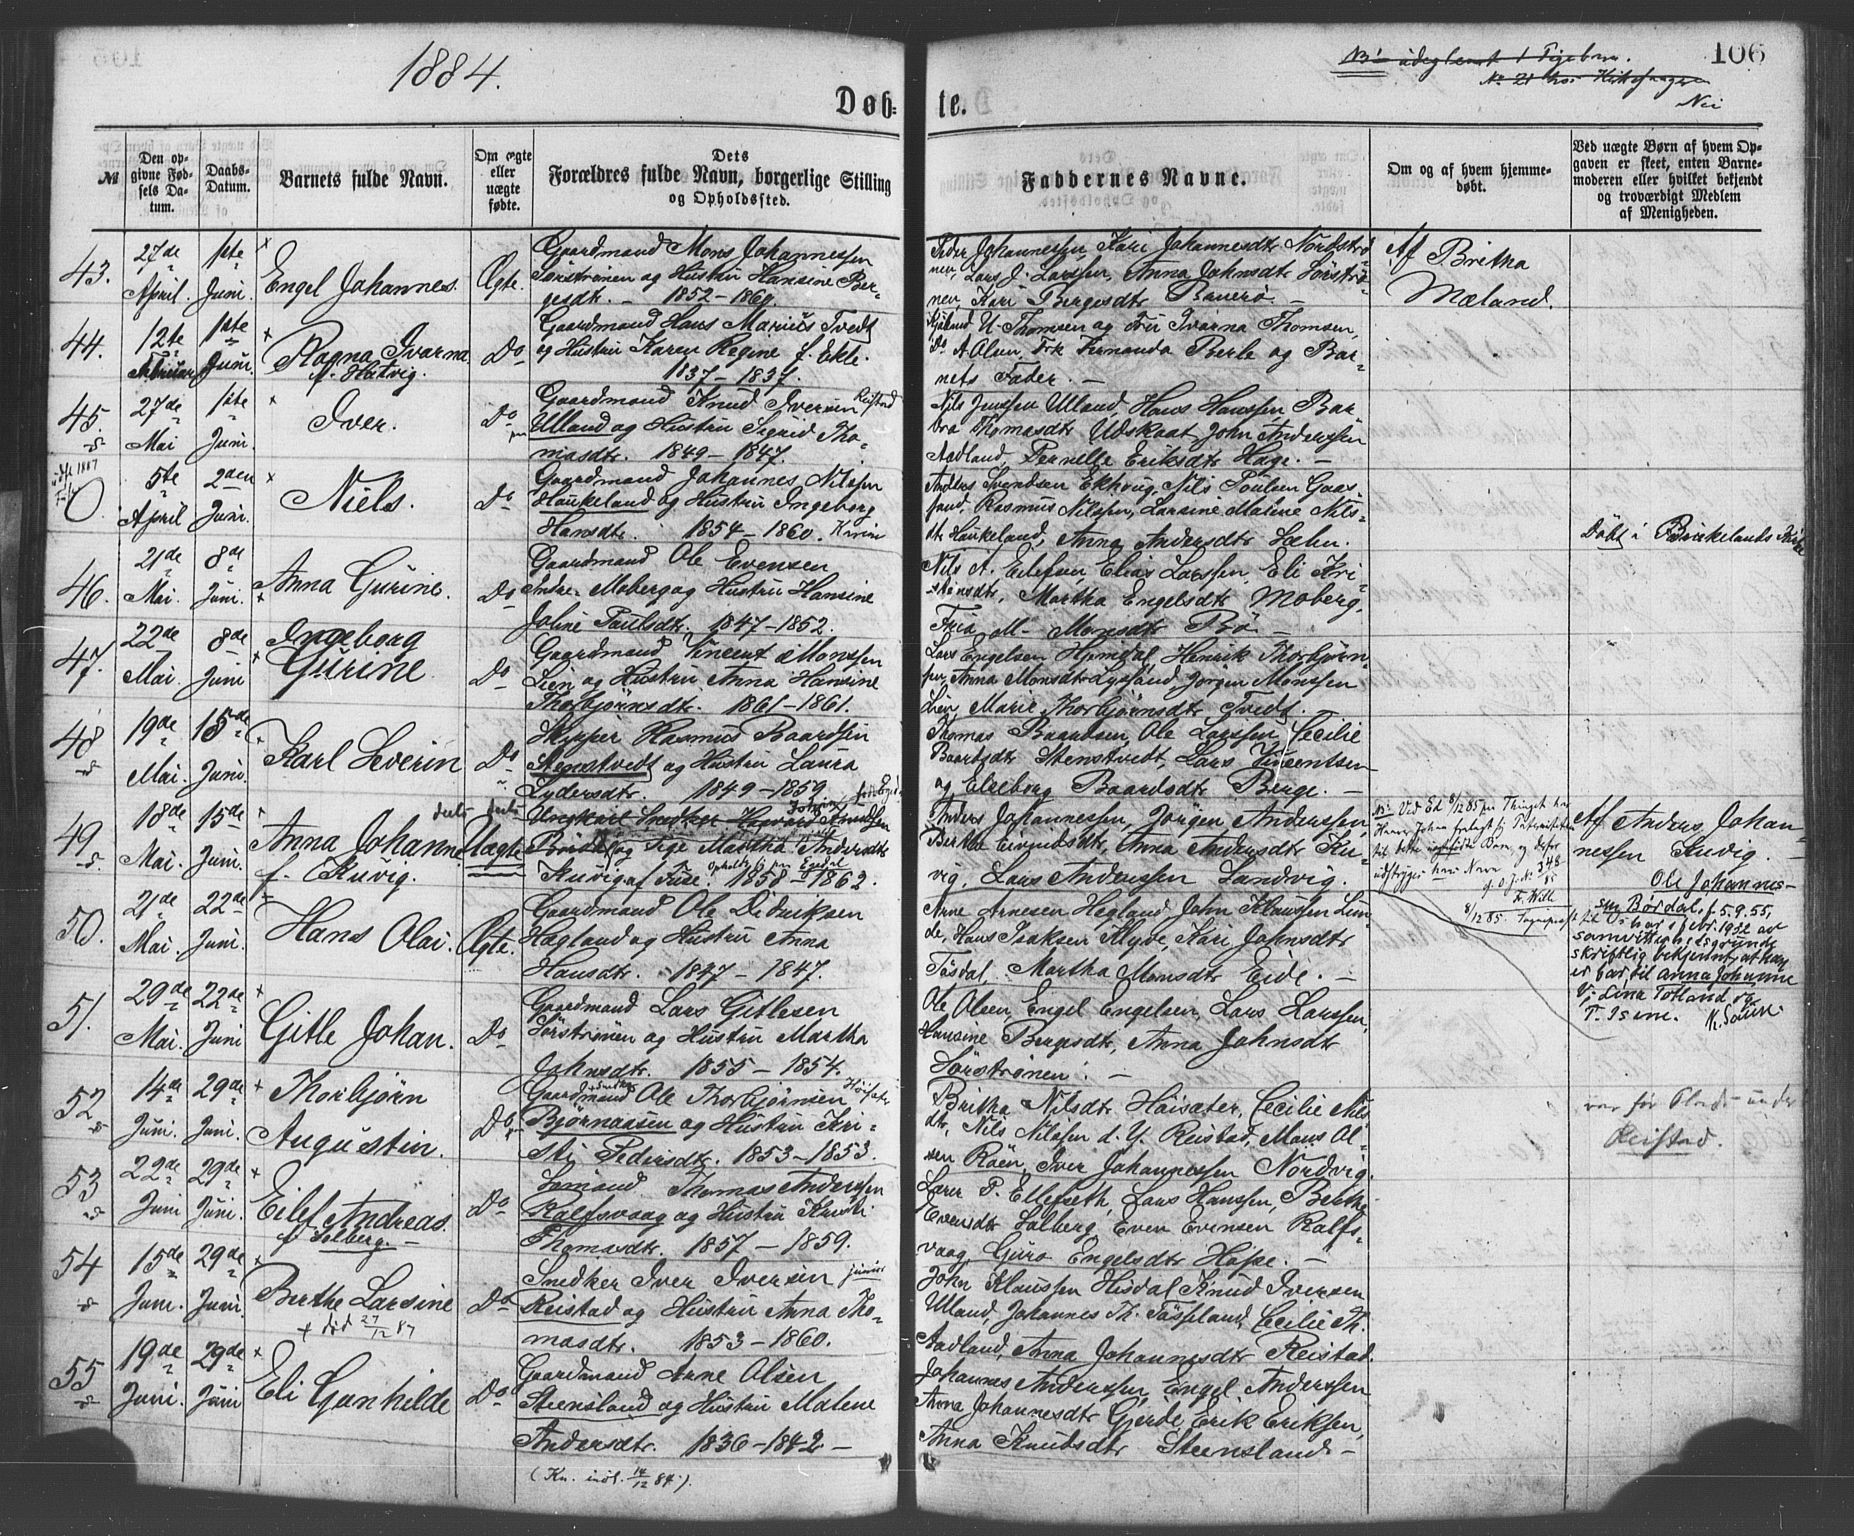 1884.
106
Døb=
te.
No 21 hos
№
Den op-
givne Fød-
sels Da-
tum.
Daabs-
Datum.
Barnets fulde Navn.
Om ægte
eller
uægte
fødte.
Dets
Forældres fulde Navn, borgerlige Stilling
og Opholdssted.
Faddernes Navne.
Om og af hvem hjemme-
døbt.
Ved uægte Børn af hvem Op-
gaven er skeet, enten Barne-
moderen eller hvilket bekjendt
og troværdigt Medlem
af Menigheden.
43.
27de April.
1ste Juni.
Engel Johannes.
Ægte.
Gaardmand Mons Johannessen
Sørstrønen og Hustru Hansine Ber-
gesdtr. – 1852 – 1860.
Peder Johannessen, Kari Johannesdtr Nordstrø-
nen, Lars J. Larssen, Anna Johnsdtr Sørstrø-
nen, Kari Bergesdtr Banerø. –
Af Britha
Mæland.
44.
12te Februar
1ste Juni.
Ragna Ivarna
f. Hatvig.
Do
Gaardmand Hans Marius Tvedt
og Hustru Karen Regine f. Ekle.
1837 – 1837.
U. Thomsen og Fru Ivarna Thomsen,
A. Olsen, Frk Fernanda Berle og Bar-
nets Fader. –
45.
27de Mai
1ste Juni.
Iver.
Do
Gaardmand Knud Iversen Reistad
Ulland og Hustru Sigrid Tho-
masdtr. 1849 – 1847.
Nils Jenssen Ulland, Hans Hanssen, Bar-
bra Thomasdtr Udskaat, John Anderssen
Aadland, Pernelle Eriksdtr Hage. –
0
5te April
2den Juni.
Niels.
Do
Gaardmand Johannes Nilssen
Haukeland og Hustru Ingeborg
Hansdtr. 1854 – 1860.
Anders Svendsen Ekhoug, Nils Poulsen Gaas-
sand, Rasmus Nilssen, Larsine Malene Nils-
dtr Haukeland, Anna Andersdtr Sæle.
Døbt i Birkelands Kirke
46.
21de Mai.
8de Juni.
Anna Gurine.
Do
Gaardmand Ole Evensen
Indre-Moberg og Hustru Hansine
Joline Paulsdtr. 1847 – 1852.
Nils A. Eilefsen, Elias Larssen, Eli Kri-
stensdtr, Martha Engelsdtr Moberg,
M. Monsdtr Bø –
47.
22de Mai.
8de Juni
Ingeborg
Gurine
Do
Gaardmand Vincent Monssen
Lien og Hustru Anna Hansine
Thorbjørnsdtr. 1861 – 1861.
Lars Engelsen Hjemdal, Henrik Thorbjørn-
sen, Anna Monsdtr Lyssand, Jørgen Monssen
Lien, Marie Thorbjørnsdtr Tvedt.
48
19de Mai.
15de Juni.
Karl Severin
Do
Skipper Rasmus Baardsen
Stenstvedt og Hustru Laura
Lydersdtr. 1849 – 1859.
Thomas Baardsen, Ole Larssen, Cecilie
Baardsdtr Stenstvedt, Lars Vincentsen
og Elseborg Baardsdtr Berge. –
49
18de Mai.
15de Juni.
Anna Johanne
f. Skuvig.
Uægte
Ungkarl Snedker
og Pige Martha Andersdtr
Skuvig af Fuse. 1858 – 1862.
Anders Johannessen, Jørgen Anderssen,
Berthe Eivindsdtr, Anna Andersdtr Sku-
vig, Lars Anderssen Sandvig.
NB. Ved Ed 8/12 85 paa Thinget har
8/12 85
Af Anders Johan-
nessen Skuvig. –
Ole Johannes-
sen Børdal, f. 5.9.55,
har i febr. 1932 av
samvittighetsgrunde
skriftlig bekjennt, at han
er far til Anna Johanne
V: Lina Totland og
T. Isene.
50.
21de Mai.
22de Juni.
Hans Olai.
Ægte.
Gaardmand Ole Dedriksen
Hegland og Hustru Anna
Hansdtr. 1847 – 1847.
Arne Arnesen Hegland, John Klaussen Lun-
de, Hans Isaksen Klyve, Kari Johnsdtr
Tøsdal, Martha Monsdtr Eide. –
51.
29de Mai.
22de Juni
Gitle Johan.
Do
Gaardmand Lars Gitlesen
Sørstrønen og Hustru Martha
Johnsdtr. 1855 – 1854.
Ole Olsen, Engel Engelsen, Lars Larssen,
Hansine Bergesdtr, Anna Johnsdtr
Sørstrønen. –
52
14de Juni.
29de Juni.
Thorbjørn
Augustin.
Do
Gaardmand Ole Thorbjørnsen Høisæter
Bjørnaasen og Hustru Kri-
sti Pedersdtr. 1853 – 1853.
Britha Nilsdtr Høisæter, Cecilie Nils-
dtr, Nils Nilssen d. Y. Reistad, Mons Ol-
sen Røen, Iver Johannessen Nordvig.
Reistad.
53
22de Juni
29de Juni.
Eilef Andreas.
f Solberg. –
Do
Sømand Thomas Anderssen
Ralfsvaag og Hustru Kirsti
Thomasdtr. 1857 – 1859.
Larer P. Ellefseth, Lars Hanssen, Berthe
Evensdtr Solberg, Even Evensen Ralfs-
vaag, Guro Engelsdtr Hope. –
54
15de Juni.
29de Juni.
Berthe Larsine
+ død 27/12 87
Do
Snedker Iver Iversen junior
Reistad og Hustru Anna Tho-
masdtr. 1853 – 1860.
John Klaussen Hisdal, Knud Iversen
Ulland, Johannes Th. Tøsseland, Cecilie Th.
Aadland, Anna Johannesdtr Reistad.
55
19de Juni.
29de Juni
Eli Gunhilde
Do
Gaardmand Arne Olsen
Steensland og Hustru Malene
Andersdtr. 1836 – 1842 –
(Kn. indl. 14/12 84.)
Johannes Anderssen, Engel Anderssen
Anna Johannesdtr Gjerde, Erik Eriksen,
Anna Knudsdtr Steensland –